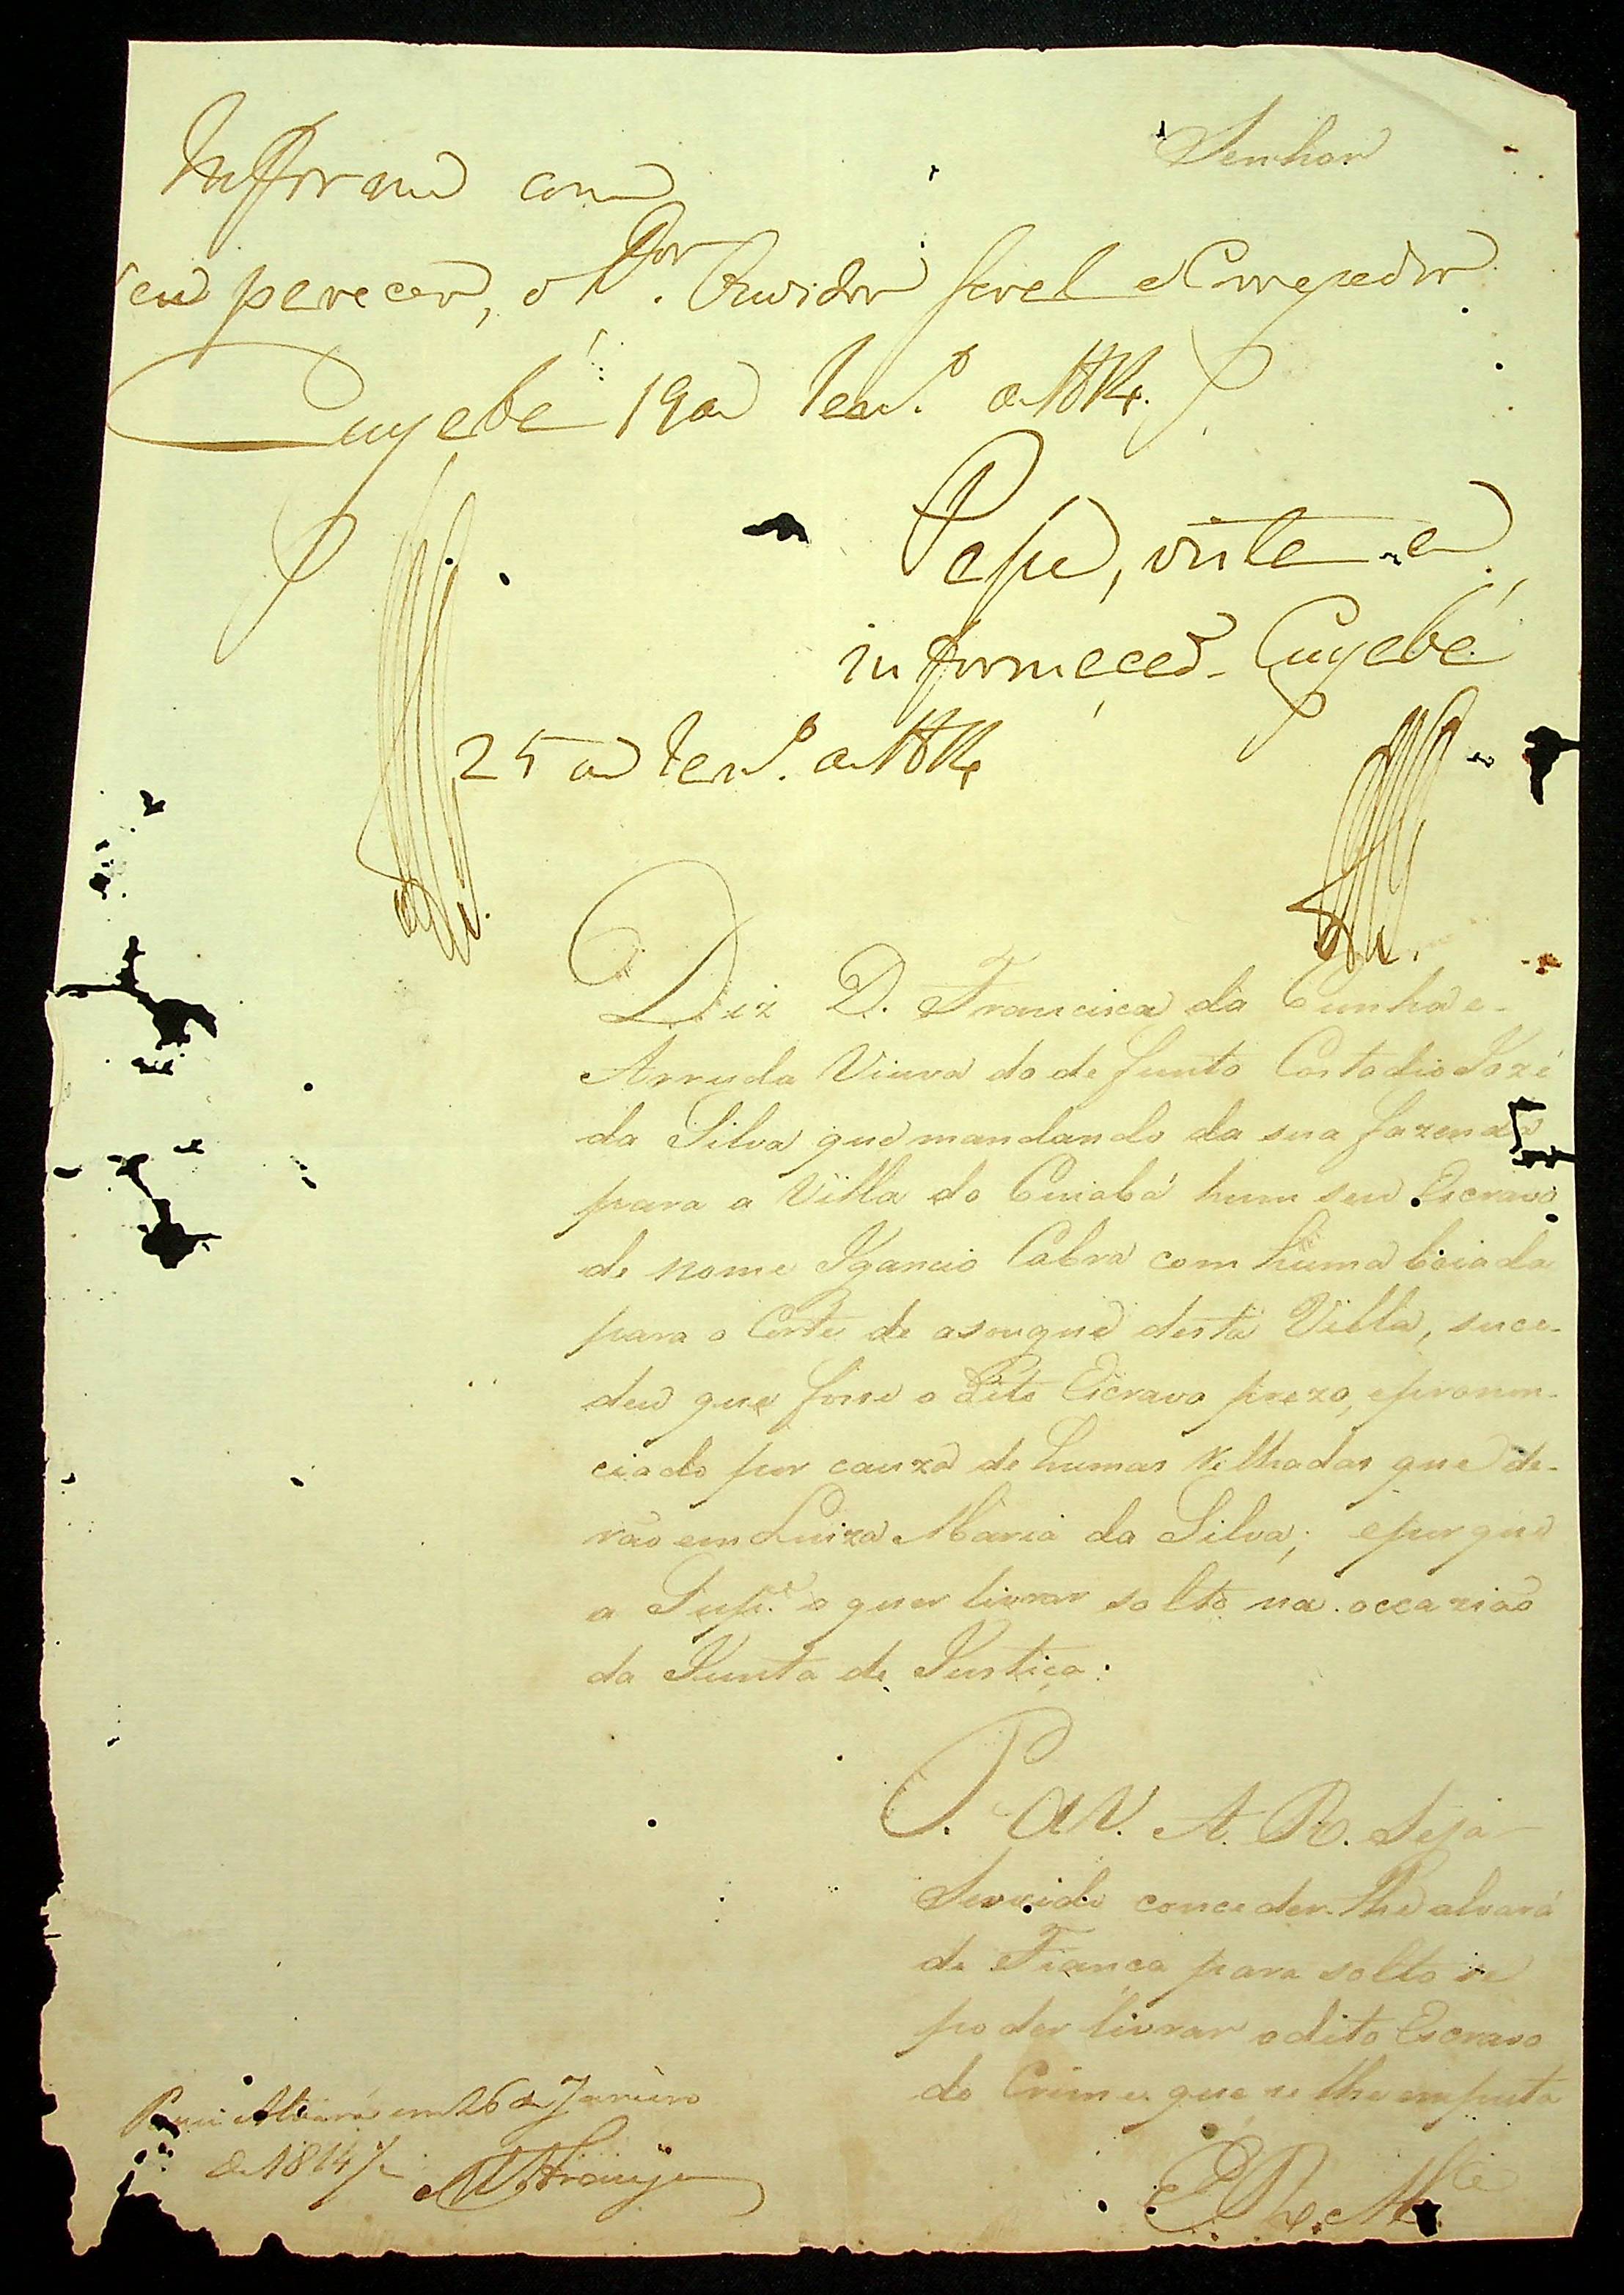 Senhor
Informe com
seu parecer, o D.or Ouvidor Geral e Corregedor
Cuyabá 19 de Jan.o de 1814.
Passe, vista a
informação. Cuyabá
25 de Jan.o de 1814
Diz D. Francisca da Cunha e
Arruda Viuva do defunto Costodio Jozé
da Silva que mandando da sua fazenda
para a Villa do Cuiabá hum seu Escravo
de nome Igancio Cabra com huma boiada
para o Corte de asougue desta Villa, suce-
deu que fosse o dito Escravo prezo, e pronun-
ciado por cauza de humas relhadas que de-
rão em Luiza Maria da Silva; e porque
a Sup.e o quer livrar solto na occazião
da Junta de Justiça:
P. a V. A. R. Seja
Servido conceder-lhe alvará
de Fiança para solto se
poder livrar o dito Escravo
do Crime que se lhe emputa
E. R. M.ce
Alvará em 26 de Janeiro
de 1814 Araujo